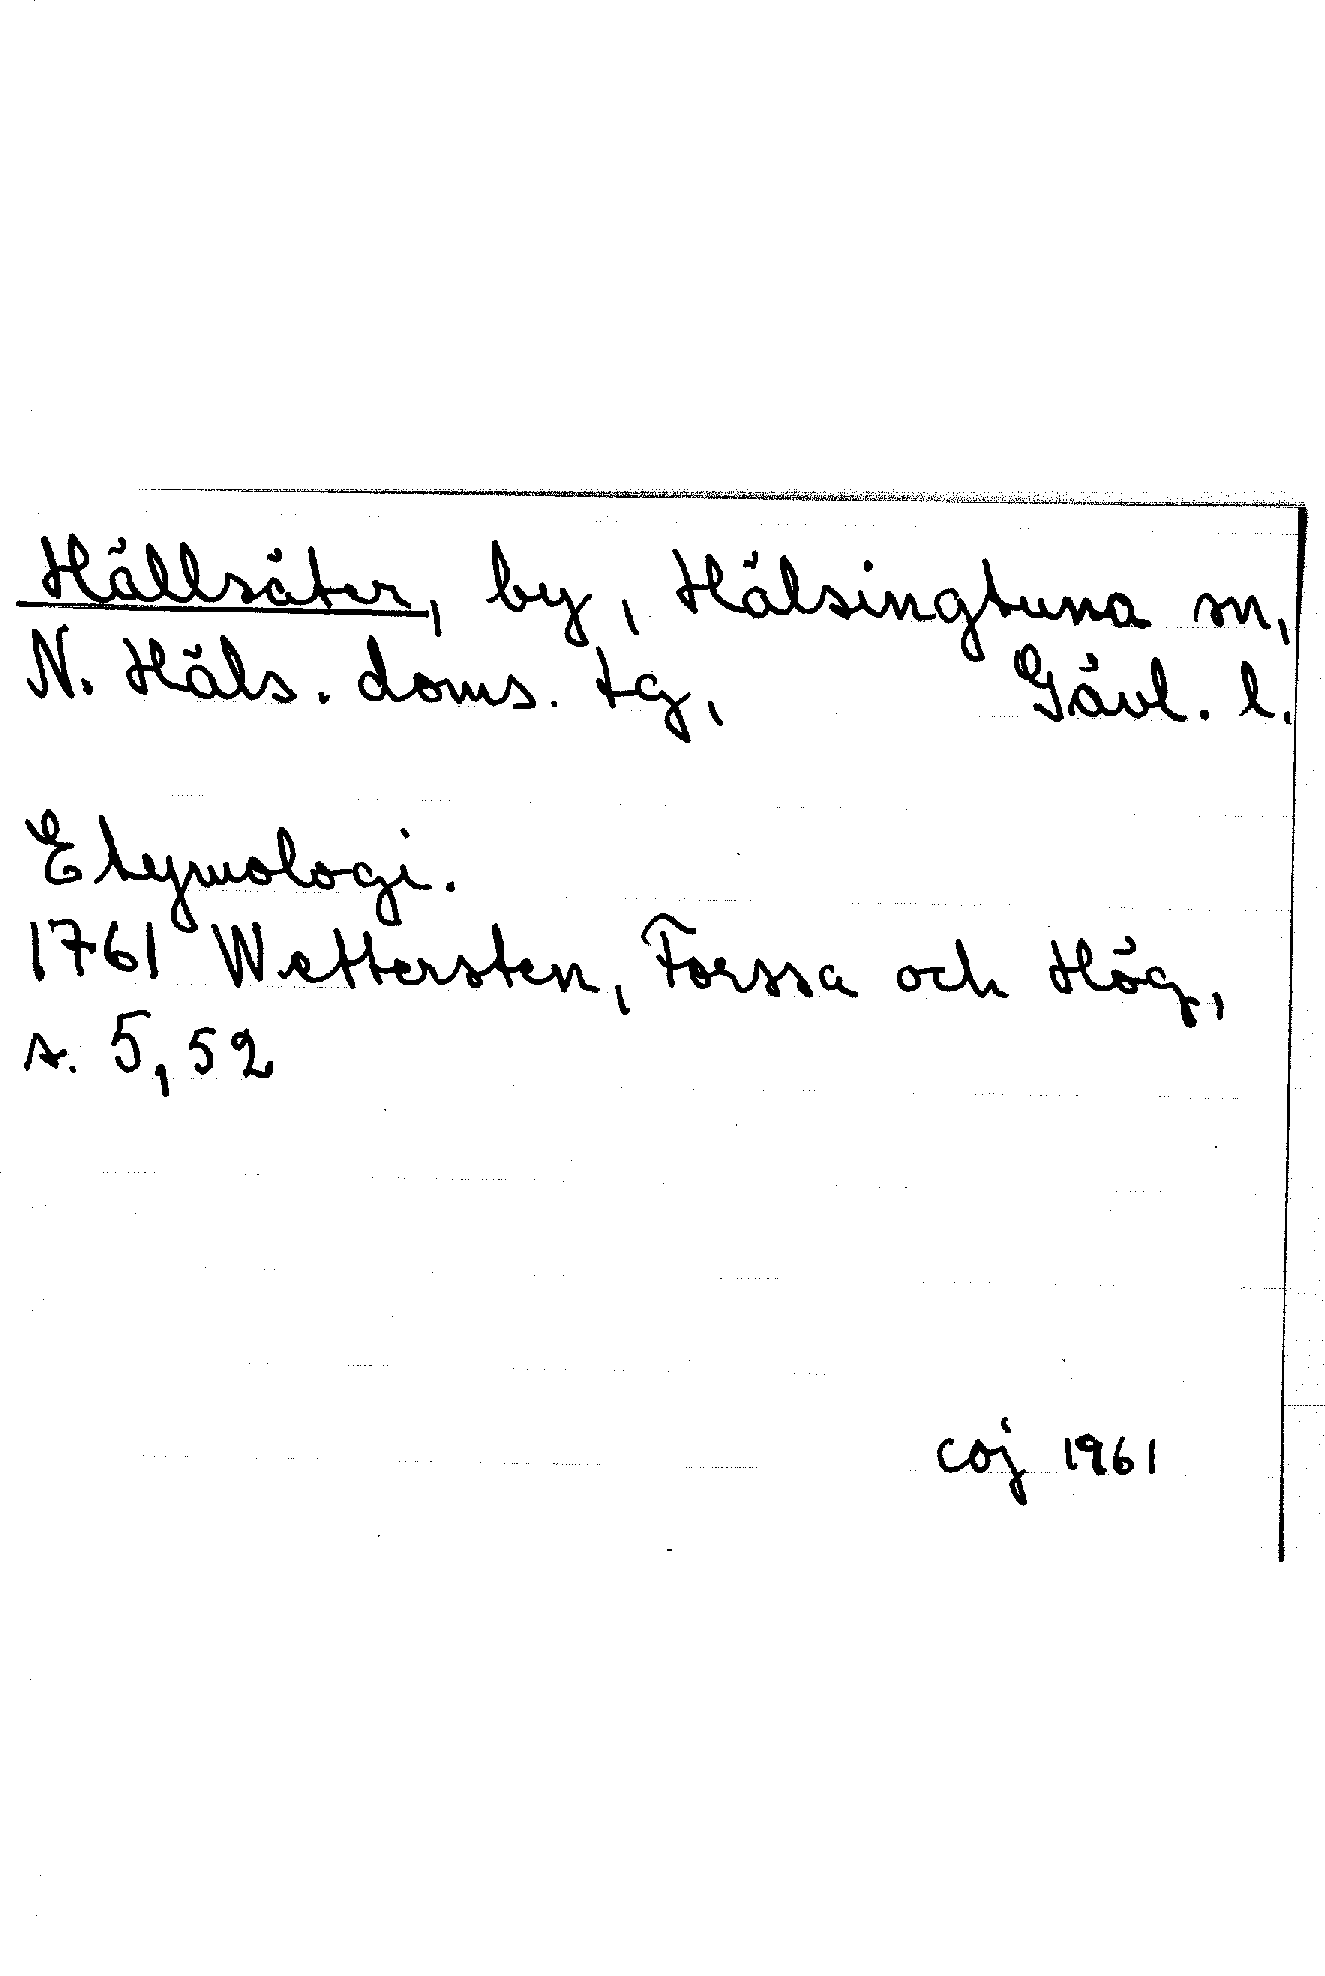 Hällsäter, by, Hälsingtuna sn,
N. Häls. doms. tg, Gävl. l.
Etymologi.
1761 Wettersten, Forssa och Hög,
s. 5, 52
coj 1961